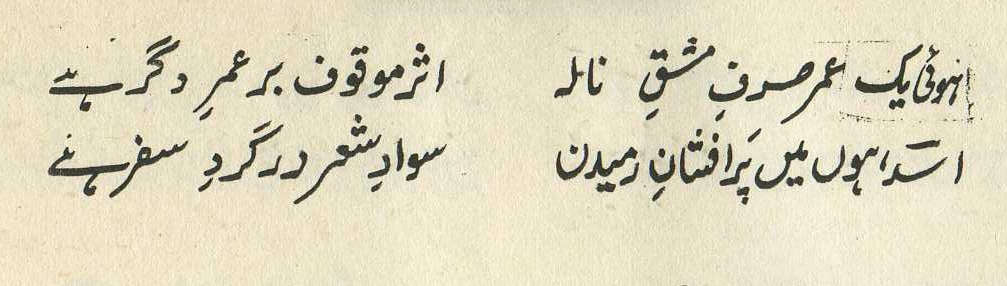 ہوئی یک عمر صرفِ مشقِ نالہ اثر موقوف بر عمرِ دگر ہے
اسدؔ ہوں میں پَر افشانِ رمیدن سوادِ شعر در گردِ سفر ہے